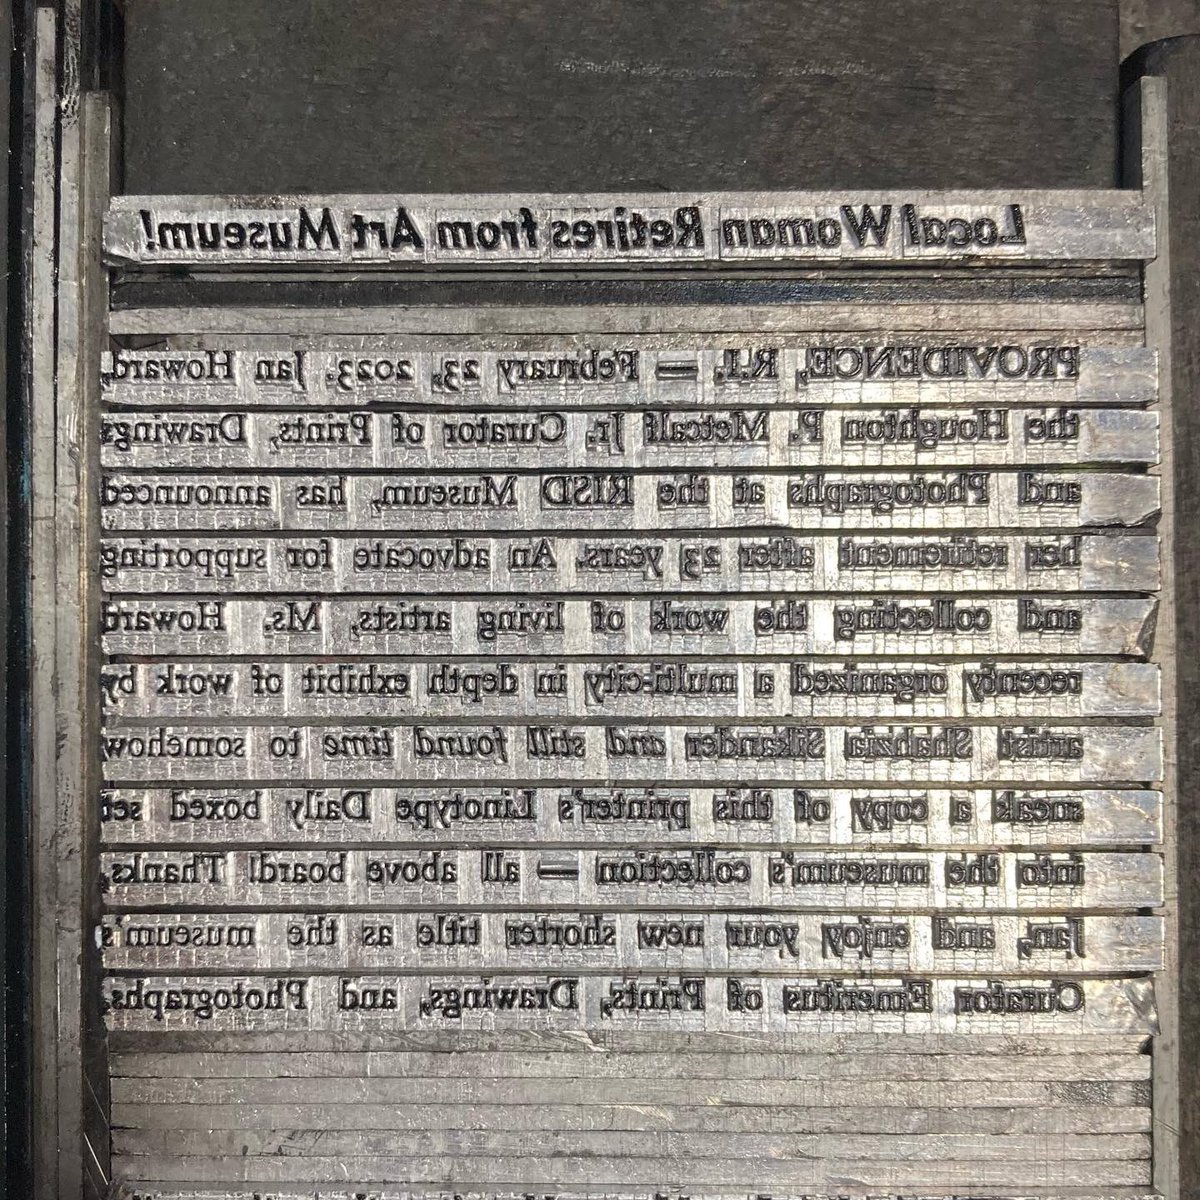 Local Woman Retires from Art Museum!
PROVIDENCE, R.I. — February 23, 2023. Jan Howard,
the Houghton P. Metcalf Jr. Curator of Prints, Drawings
and Photographs at the RISD Museum, has announced
her retirement after 23 years. An advocate for supporting
and collecting the work of living artists, Ms. Howard
recently organized a multi-city in depth exhibit of work by
artist Shahzia Sikander and still found time to somehow
sneak a copy of this printer's Linotype Daily boxed set
into the museum's collection — all above board! Thanks,
Jan, and enjoy your new shorter title as the museum's
Curator Emeritus of Prints, Drawings, and Photographs.